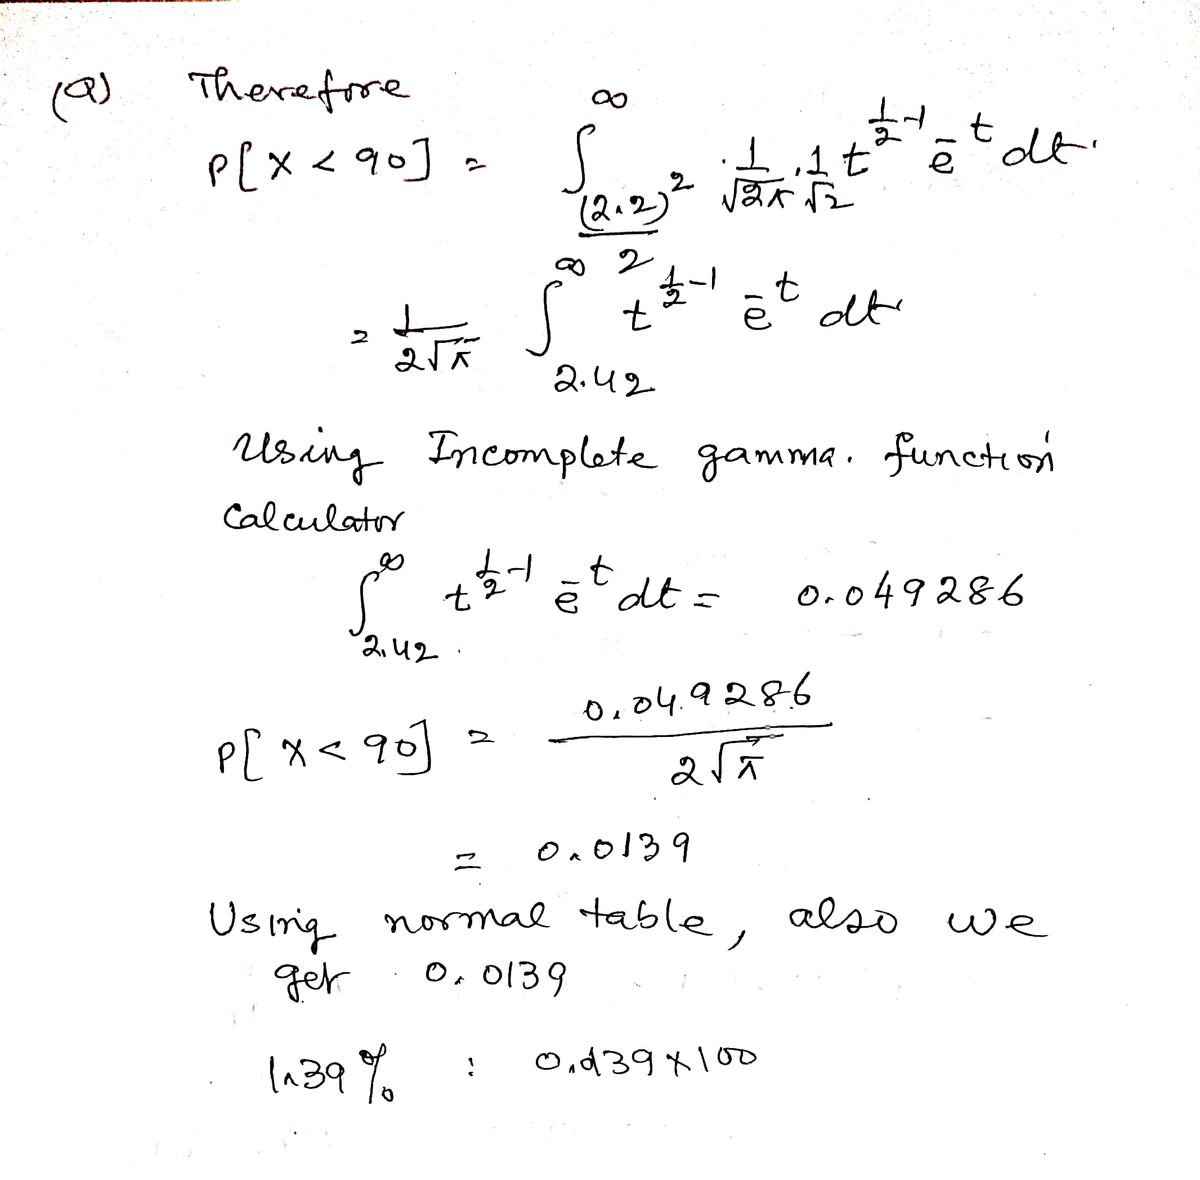 (a) Therefore
P[X < 90] = ∫_{(2.2)²/2}^{∞} · 1/√2π · 1/√2 t^{1/2-1} e^{-t} dt.
= 1/2√π ∫_{2.42}^{∞} t^{1/2-1} e^{-t} dt
Using Incomplete gamma. function
Calculator
∫_{2.42}^{∞} t^{1/2-1} e^{-t} dt = 0.049286
P[X < 90] = 0.049286/2√π
= 0.0139
Using normal table, also we
get 0.0139
1.39% : 0.0139×100